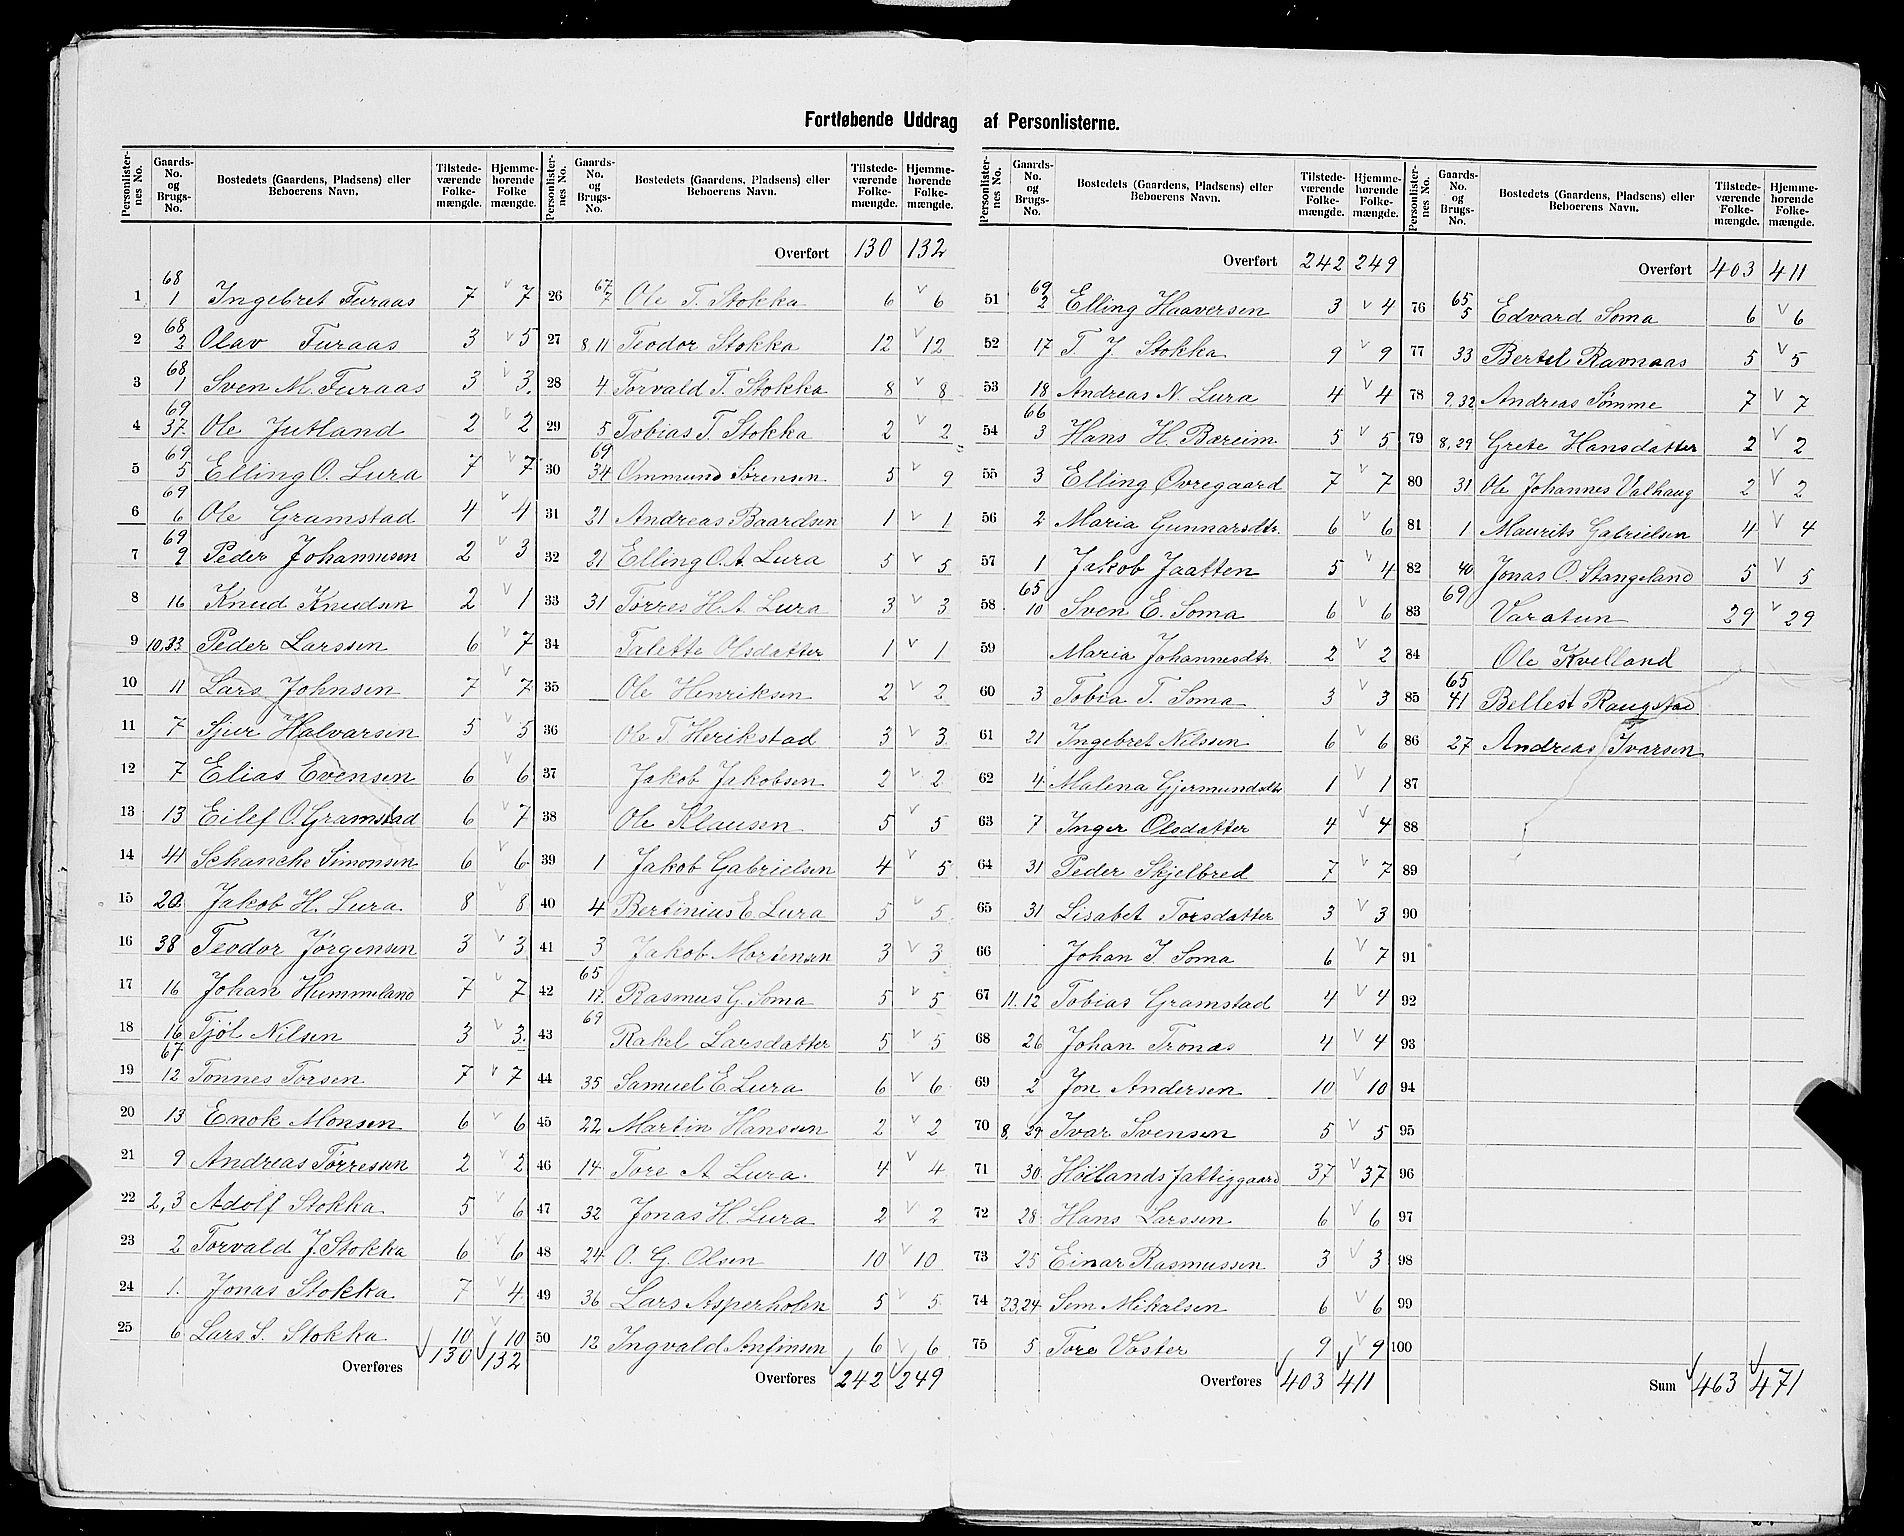 Fortløbende Uddrag af Personlisterne.
Personlisternes No. | Gaards-No. og Brugs-No. | Bostedets (Gaardens, Pladsens) eller Beboerens Navn. | Tilstedeværende Folkemængde. | Hjemmehørende Folkemængde.
1 68 1 Ingebret Furaas 7 v 7
2 68 2 Olav Furaas 3 v 5
3 68 1 Sven M. Furaas 3 v 3.
4 69 37 Ole Jutland 2 v 2
5 69 5 Elling O. Lura 7 v 7
6 69 6 Ole Gramstad 4 v 4
7 69 9 Peder Johannesen 2 v 3
8 16 Knud Knudsen 2 v 1
9 10,33 Peder Larssen 6 v 7
10 11 Lars Johnsen 7 v 7
11 7 Sjur Halvarsen 5 v 5
12 7 Elias Evensen 6 v 6
13 13 Eilef O. Gramstad 6 v 7
14 41 Schanche Simonsen 6 v 6
15 20 Jakob H. Lura 8 v 8
16 38 Teodor Jörgensen 3 v 3
17 16 Johan Hummeland 7 v 7
18 16 Tjöl Nilsen 3 v 3.
19 67 12 Tonnes Torsen 7 v 7
20 13 Enok Monsen 6 v 6
21 9 Andreas Törresen 2 v 2
22 2,3 Adolf Stokka 5 v 6
23 2 Torvald J. Stokka 6 v 6
24 1. Jonas Stokka 7 v 4
25 6 Lars S. Stokka 10 v 10
Overføres 130 132
Overført 130 132
26 67 7 Ole T. Stokka 6 v 6
27 8,11 Teodor Stokka 12 v 12
28 4 Torvald T. Stokka 8 v 8
29 5 Tobias T. Stokka 2 v 2
30 69 34 Ommund Sörensen 5 v 9
31 21 Andreas Baardsen 1 v 1
32 21 Elling O. A. Lura 5 v 5
33 31 Törres H. A. Lura 3 v 3
34 Talette Olsdatter 1 v 1
35 Ole Henriksen 2 v 2
36 Ole T. Herikstad 3 v 3
37 Jakob Jakobsen 2 v 2
38 Ole Klausen 5 v 5
39 1 Jakob Gabrielsen 4 v 5
40 4 Bertinius E. Lura 5 v 5
41 3 Jakob Mortensen 3 v 3
42 65 17. Rasmus G. Soma 5 v 5
43 69 Rakel Larsdatter 5 v 5
44 35 Samuel E. Lura 6 v 6
45 22 Martin Hanssen 2 v 2
46 14 Tore A Lura. 4 v 4
47 32 Jonas H. Lura 2 v 2
48 24 O. G. Olsen 10 v 10
49 36 Lars Asperholen 5 v 5
50 12 Ingvald Anfinsen 6 v 6
Overføres 242 249
Personlisternes No. | Gaards-No. og Brugs-No. | Bostedets (Gaardens, Pladsens) eller Beboerens Navn. | Tilstedeværende Folkemængde. | Hjemmehørende Folkemængde.
Overført 242 249
51 69 2 Elling Haaversen 3 v 4
52 17 T. J Stokka 9 v 9
53 18 Andreas N. Lura 4 v 4
54 66 3 Hans H. Bareim 5 v 5
55 3 Elling Øvregaard 7 v 7
56 2 Maria Gunnarsdtr. 6 v 6
57 1 Jakob Jaatten 5 v 4
58 65 10 Sven E. Soma 6 v 6
59 Maria Johannesdtr. 2 v 2
60 3 Tobia T. Soma 3 v 3
61 21 Ingebret Nilssen 6 v 6
62 4 Malena Gjermundsdtr 1 v 1
63 7 Inger Olsdatter 4 v 4
64 31 Peder Skjelbred 7 v 7
65 31 Lisabet Torsdatter 3 v 3
66 Johan J. Soma 6 v 7
67 11.12 Tobias Gramstad 4 v 4
68 26 Johan Tronas 4 v 4
69 2 Jon Andersen 10 v 10
70 8, 29 Ivar Svensen 5 v 5
71 30. Höllands fattiggaard 37 v 37
72 28. Hans Larssen 6 v 6
73 25 Einar Rasmussen 3 v 3
74 23,24 Sem Mikalsen 6 v 6
75 5 Tore Voster 9 v 9
Overføres 403 411
Overført 403 411
76 65 5 Edvard Soma 6 v 6
77 33 Bertel Ravnaas 5 v 5
78 9,32 Andreas Sömme 7 v 7
79 8,29 Grete Hansdatter 2 v 2
80 31 Ole Johannes Valhaug 2 v 2
81 1 Maurits Gabrielsen 4 v 4
82 40 Jonas O. Stangeland 5 v 5
83 69 Varatun 29 v 29
84 Ole Kvelland
85 65 41 Bellest Raugstad
86 27 Andreas Ivarsen
87
88
89
90
91
92
93
94
95
96
97
98
99
100
Sum 463 471